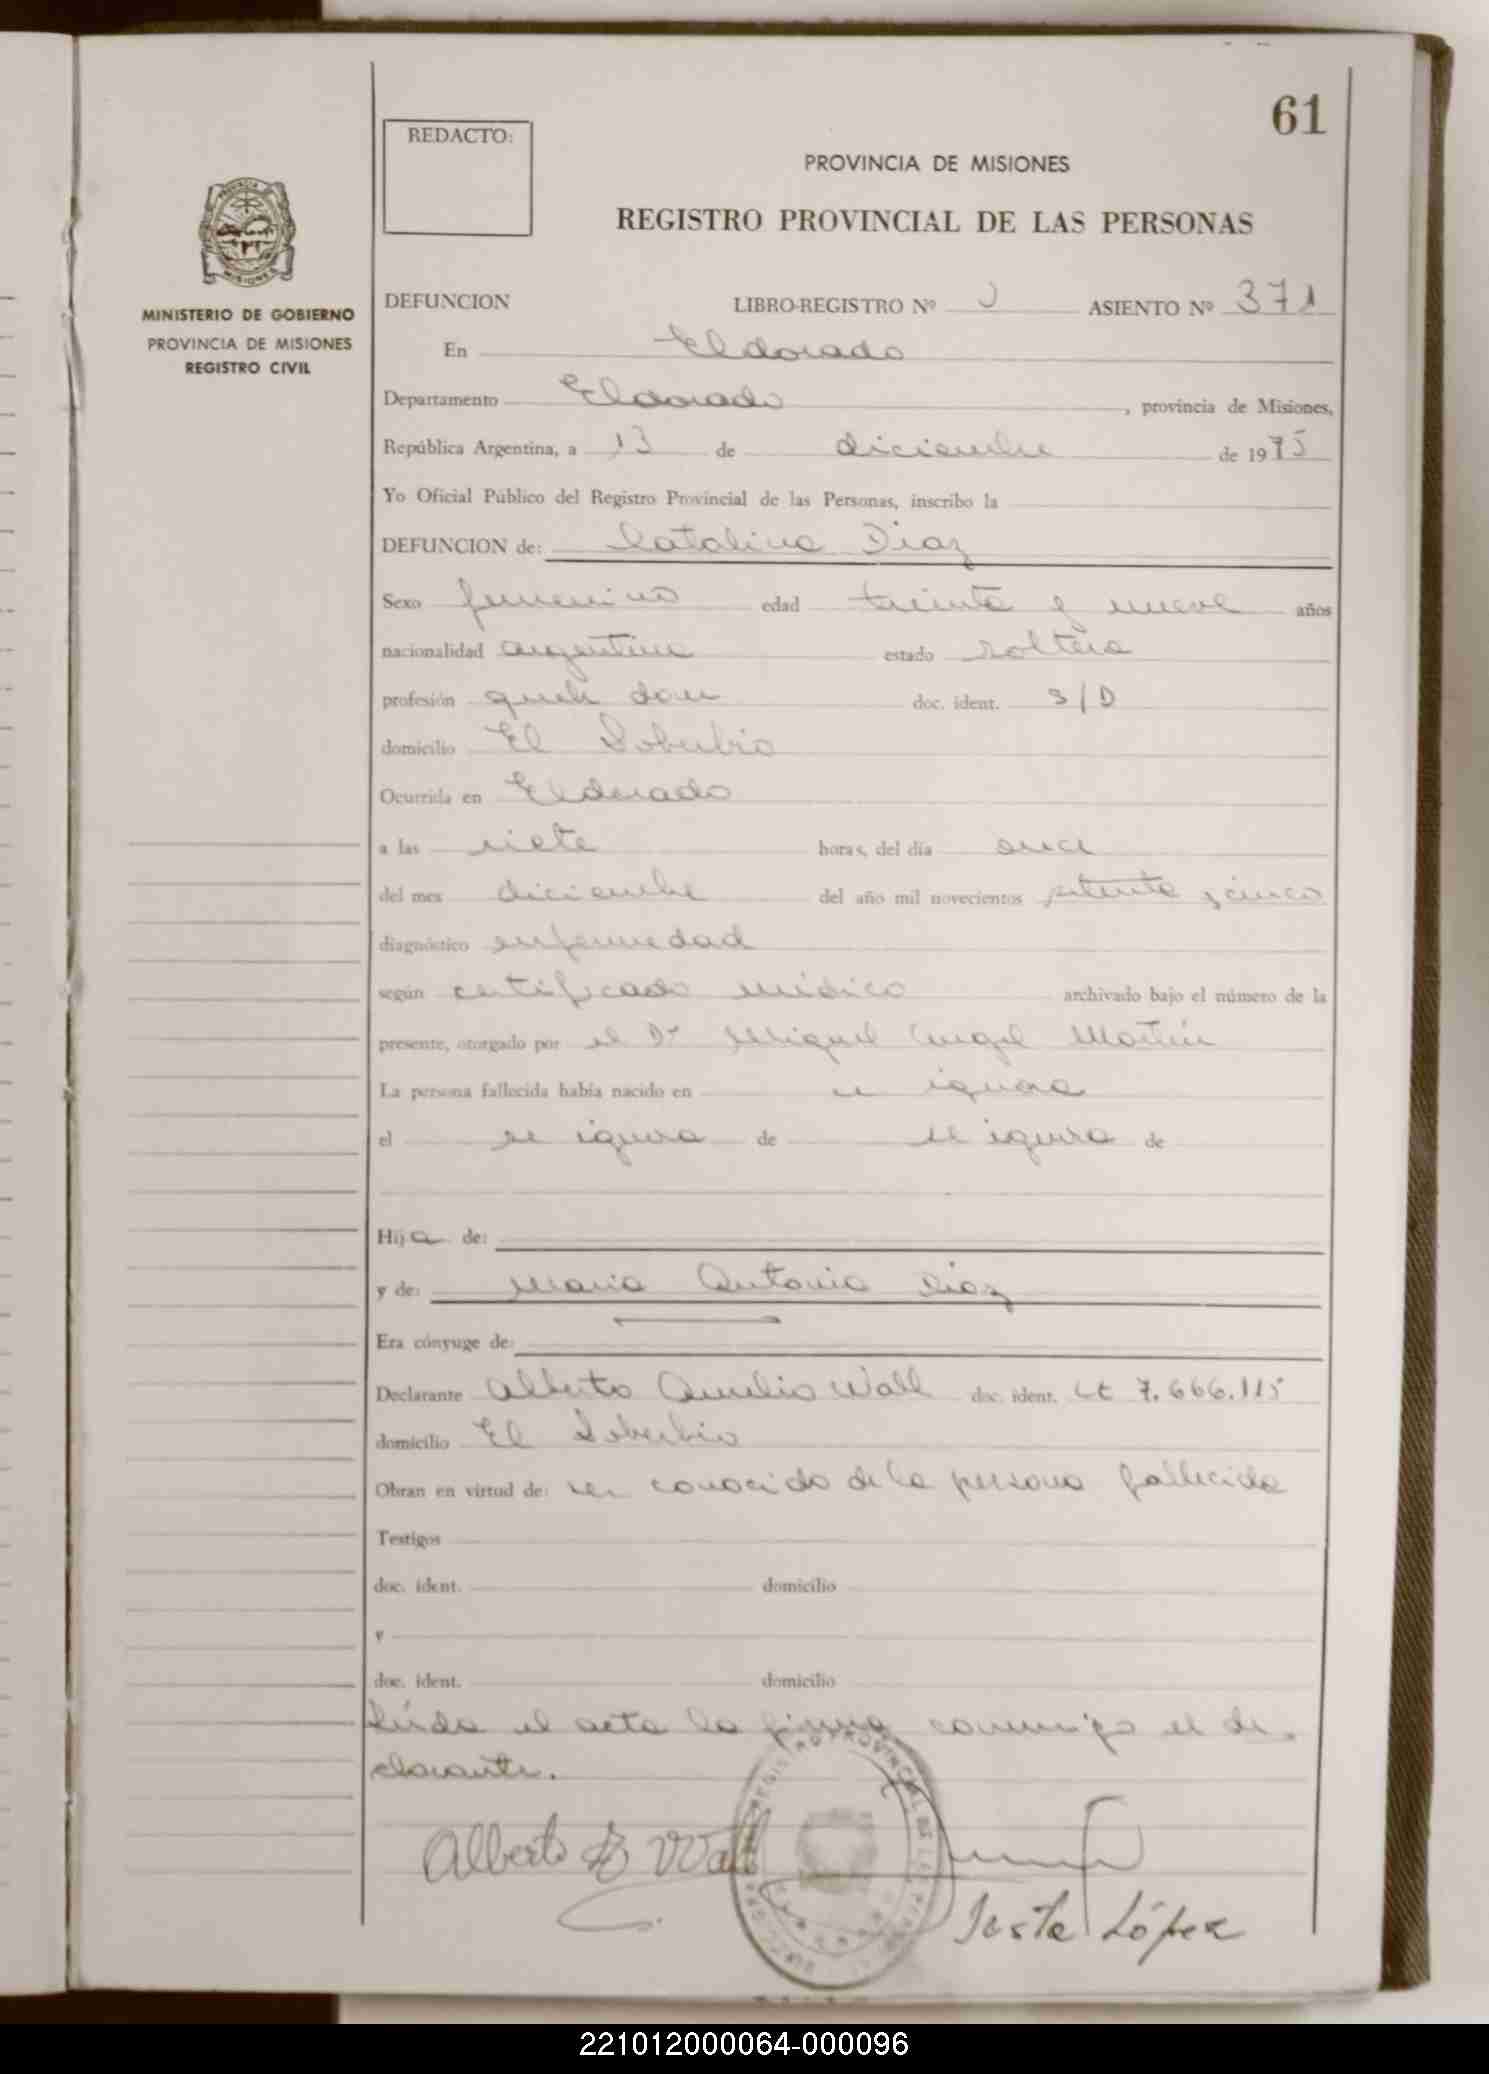 61
REDACTO:
PROVINCIA DE MISIONES
REGISTRO PROVINCIAL DE LAS PERSONAS
MINISTERIO DE GOBIERNO
PROVINCIA DE MISIONES
REGISTRO CIVIL
DEFUNCION LIBRO-REGISTRO Nº ASIENTO Nº 371
En Eldorado
Departamento Eldorado, provincia de Misiones,
República Argentina, a 13 de diciembre de 1975
Yo Oficial Público del Registro Provincial de las Personas, inscribo la
DEFUNCION de: Catalina Diaz
Sexo femenino edad treinta y nueve años
nacionalidad argentina estado soltera
profesión queh dom doc. ident. S/D
domicilio El Soberbio
Ocurrida en Eldorado
a las siete horas, del día once
del mes diciembre del año mil novecientos setenta y cinco
diagnóstico enfermedad
según certificado médico archivado bajo el número de la
presente, otorgado por el Dr Miguel Angel Martin
La persona fallecida había nacido en se ignora
el se ignora de se ignora de
Hija de:
y de: Maria Antonia Diaz
Era cónyuge de:
Declarante Alberto Aurelio Wall doc. ident. LE 7.666.115
domicilio El Soberbio
Obran en virtud de: ser conocido de la persona fallecida
Testigos
doc. ident. domicilio
y
doc. ident. domicilio
Leida el acta la firma conmigo el de-
clarante.
Alberto Wall
REGISTRO PROVINCIAL DE LAS
López
221012000064-000096